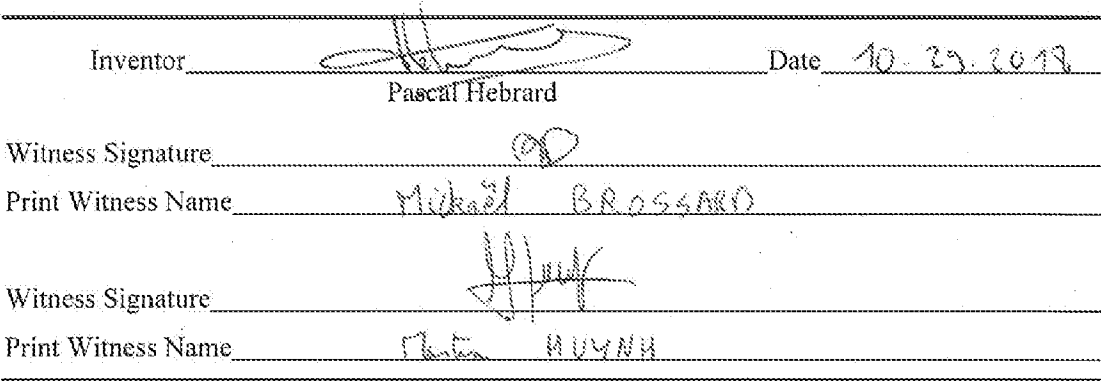 Inventor Date 10.29.2018
Pascal Hebrard
Witness Signature
Print Witness Name Mickaël BROSSARD
Witness Signature
Print Witness Name Martin HUYNH